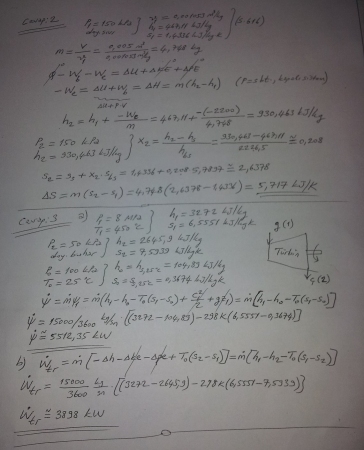 Cevap: 2
P1 = 150 kPa
doy. sıvı
v1 = 0,001053 m³/kg
h1 = 467,11 kJ/kg
s1 = 1,4336 kJ/kgK
m = V/v1 = 0,005 m³/0,001053 m³/kg = 4,748 kg
- We - Wb = ΔU + ΔKE + ΔPE
- We = ΔU + Wb = ΔH = m(h2-h1) (P = sbt.
h2 = h1 + -We/m = 467,11 + -(-2200)/4,748 = 930,463 kJ/kg
P2 = 150 kPa
h2 = 930,463 kJ/kg
x2 = h2-h1/hfg = 930,463-467,11/2226,5 ≅ 0,208
s2 = s1 + x2·sfg = 1,4336 + 0,208·5,7897 ≅ 2,6378
ΔS = m(s2-s1) = 4,748(2,6378-1,4336) = 5,717 kJ/K
Cevap: 3 a)
P1 = 8 MPa
T1 = 450 °C
h1 = 3272 kJ/kg
s1 = 6,5551 kJ/kgK
g(1)
P2 = 50 kPa
doy. buhar
h2 = 2645,9 kJ/kg
s2 = 7,5939 kJ/kgK
Türbin
ç(2)
P0 = 100 kPa
T0 = 25 °C
h0 = hf,25°C = 104,83 kJ/kg
s0 = sf,25°C = 0,3674 kJ/kgK
ψ̇ = ṁψ1 = ṁ[h1-h0-T0(s1-s0) + C1²/2 + gz1] = ṁ[h1-h0-T0(s1-s0)]
ψ̇ = 15000/3600 kg/sn · [(3272-104,83)-298K(6,5551-0,3674)]
ψ̇ ≅ 5512,35 kW
b) Ẇtr = ṁ[-Δh-Δke-Δpe+T0(s2-s1)] = ṁ[h1-h2-T0(s1-s2)]
Ẇtr = 15000/3600 kg/sn · [(3272-2645,9)-298K(6,5551-7,5939)]
Ẇtr ≅ 3898 kW